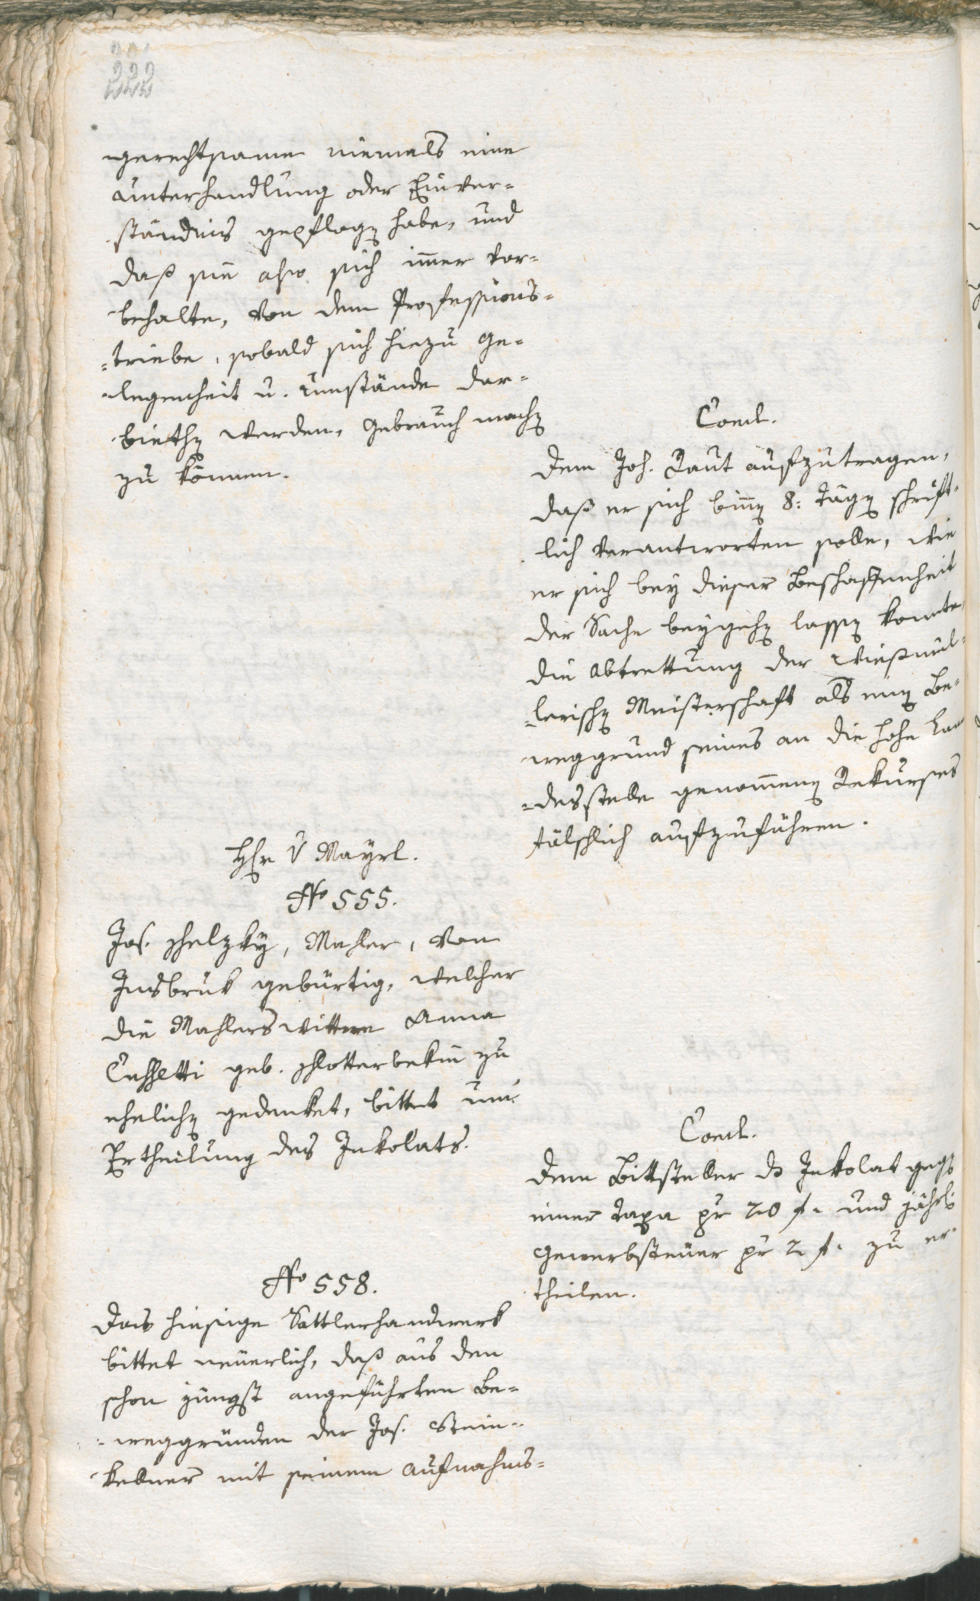 222
gerechtsame niemals eine
Unterhandlung oder Einver-
ständnis gepflogen habe, und
daß sie also sich immer vor-
behalte, von dem Professions-
triebe, sobald sich hiezu Ge-
legenheit u. Umstände dar-
biethen werden, Gebrauch machen
zu können.
Concl.
Dem Joh. Raut aufzutragen,
daß er sich binnen 8: Tägen schrift-
lich verantworten solle, wie
er sich bey dieser Beschaffenheit
der Sache beygehen lassen konnte,
die Abtrettung der Wießmül-
lerischen Meisterschaft als einen Be-
weggrund seines an die hohe Lan-
desstelle genommenen Rekurses
fälschlich aufzuführen.
Hr v Mayrl.
No 555.
Jos. Schelzky, Mahler, von
Insbruk gebürtig, welcher
die Mahlers Wittwe Anna
geb. Schlotterbekin zu
ehelichen gedenket, bittet um
Ertheilung des Inkolats.
Concl.
Dem Bittsteller das Inkolat gegen
einer Taxa pr 20 f. und jährl:
Gewerbsteuer pr 2 f. zu er-
theilen.
No 558.
Das hiesige Sattlerhandwerk
bittet neuerlich, daß aus den
schon jüngst angeführten Be-
weggründen der Jos. Stein-
keller mit seinem Aufnahms-